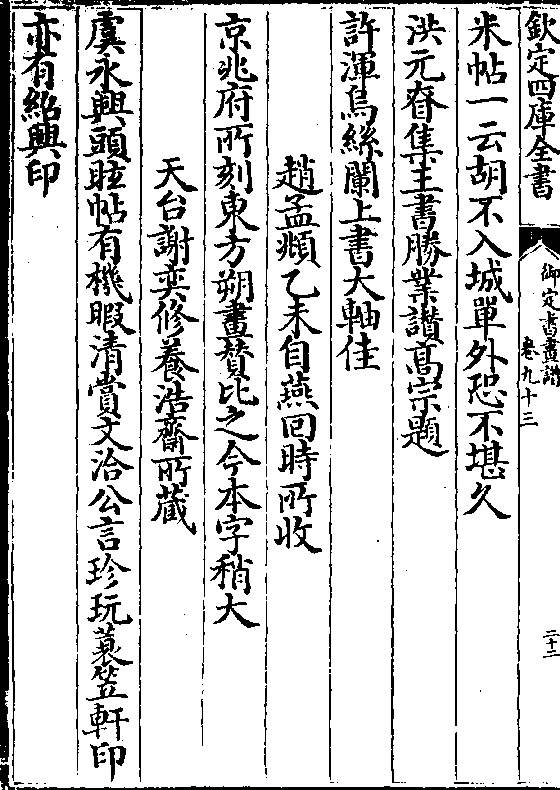 欽定四庫全書
御定書畫譜
卷九十三
二十二
米帖一云胡不入城單外恐不堪久
洪元眘集王書勝業讃高宗題
許渾烏絲闌上書大軸佳
趙孟頫乙未自燕回時所收
京兆府所刻東方朔畫贊比之今本字稍大
天台謝奕修養浩齋所藏
虞永興頭眩帖有機暇清賞文洽公言珍玩蓑笠軒印
亦有紹興印